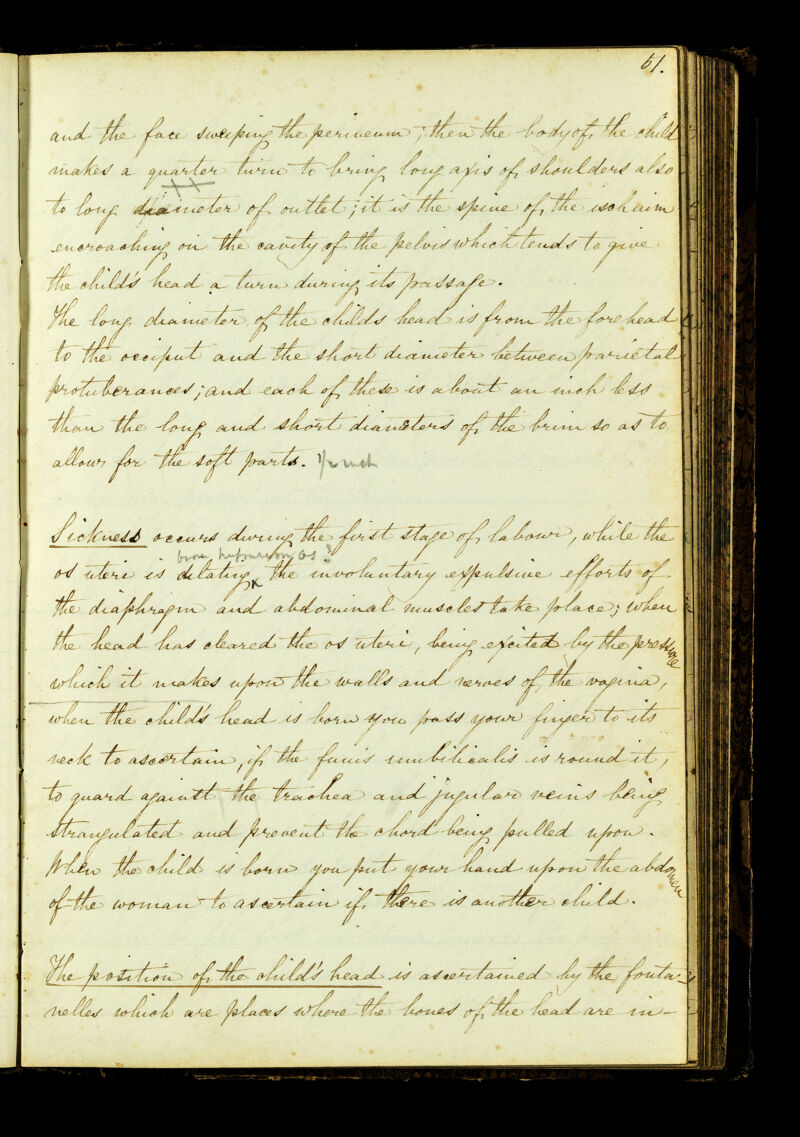 51.
and the face sweeping the perineum; then the body of the child
makes a quarter turn to bring long axis of shoulders also
to long diameter of outlet; it is the spine of the ischaim
encroaching on the cavity of the pelvis which tends to give
the child's head a turn during its passage.
The long diameter of the childs head is from the forehead
to the occiput and the short diameter between parietal
protuberances; and each of these is about an inch less
than the long and short diameters of the brim so as to
allow for the soft parts. 1/2 inch
Sickness occurs during the first stage of labour, while the
from os?
os uteri is dilating x the involuntary expulsive efforts of
the diaphragm and abdominal muscles take place; when
the head has cleared the os uteri, being excited by the pressure
which it makes upon the walls and nerves of the vagina,
when the child's head is born you pass your finger to its
neck to ascertain, if the funis umbilicalis is round it,
to guard against the trachea and jugular veins being
strangulated and prevent the chord being pulled upon.
When the child is born you put your hand upon the abdomen
of the woman to ascertain if there is another child.
The position of the child's head is ascertained by the fonta-
nelles which are places where the bones of the head are in-